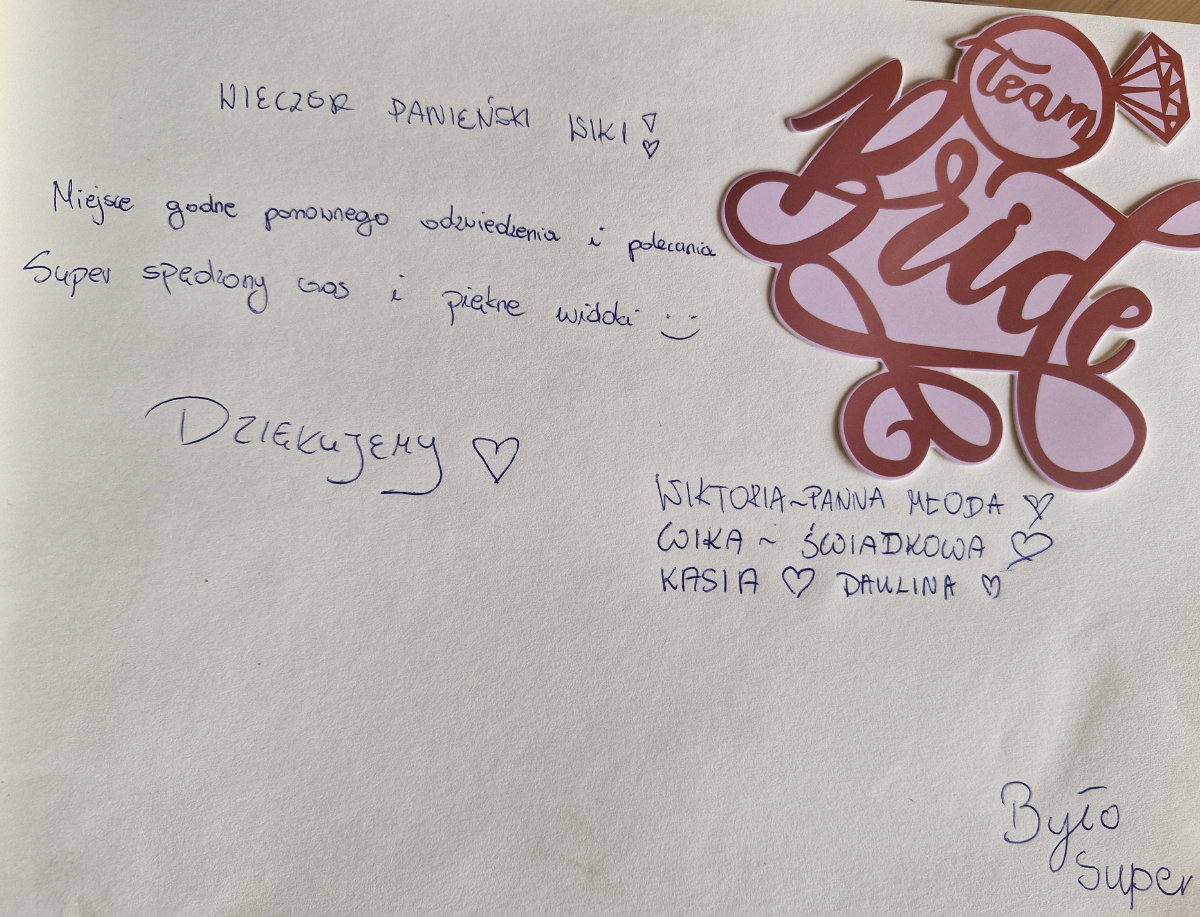 WIECZOR PANIEŃSKI WIKI
Team
Bride
Miejsce godne ponownego odwiedzenia i polecania
Super spędzony czas i piękne widoki :)
DZIĘKUJEMY ♡
WIKTORIA~PANNA MŁODA ♡
WIKA ~ ŚWIADKOWA ♡
KASIA ♡ PAULINA ♡
Było
super